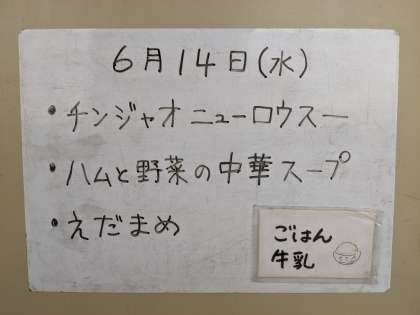 6月14日(水)
・チンジャオニューロウスー
・ハムと野菜の中華スープ
・えだまめ
ごはん
牛乳